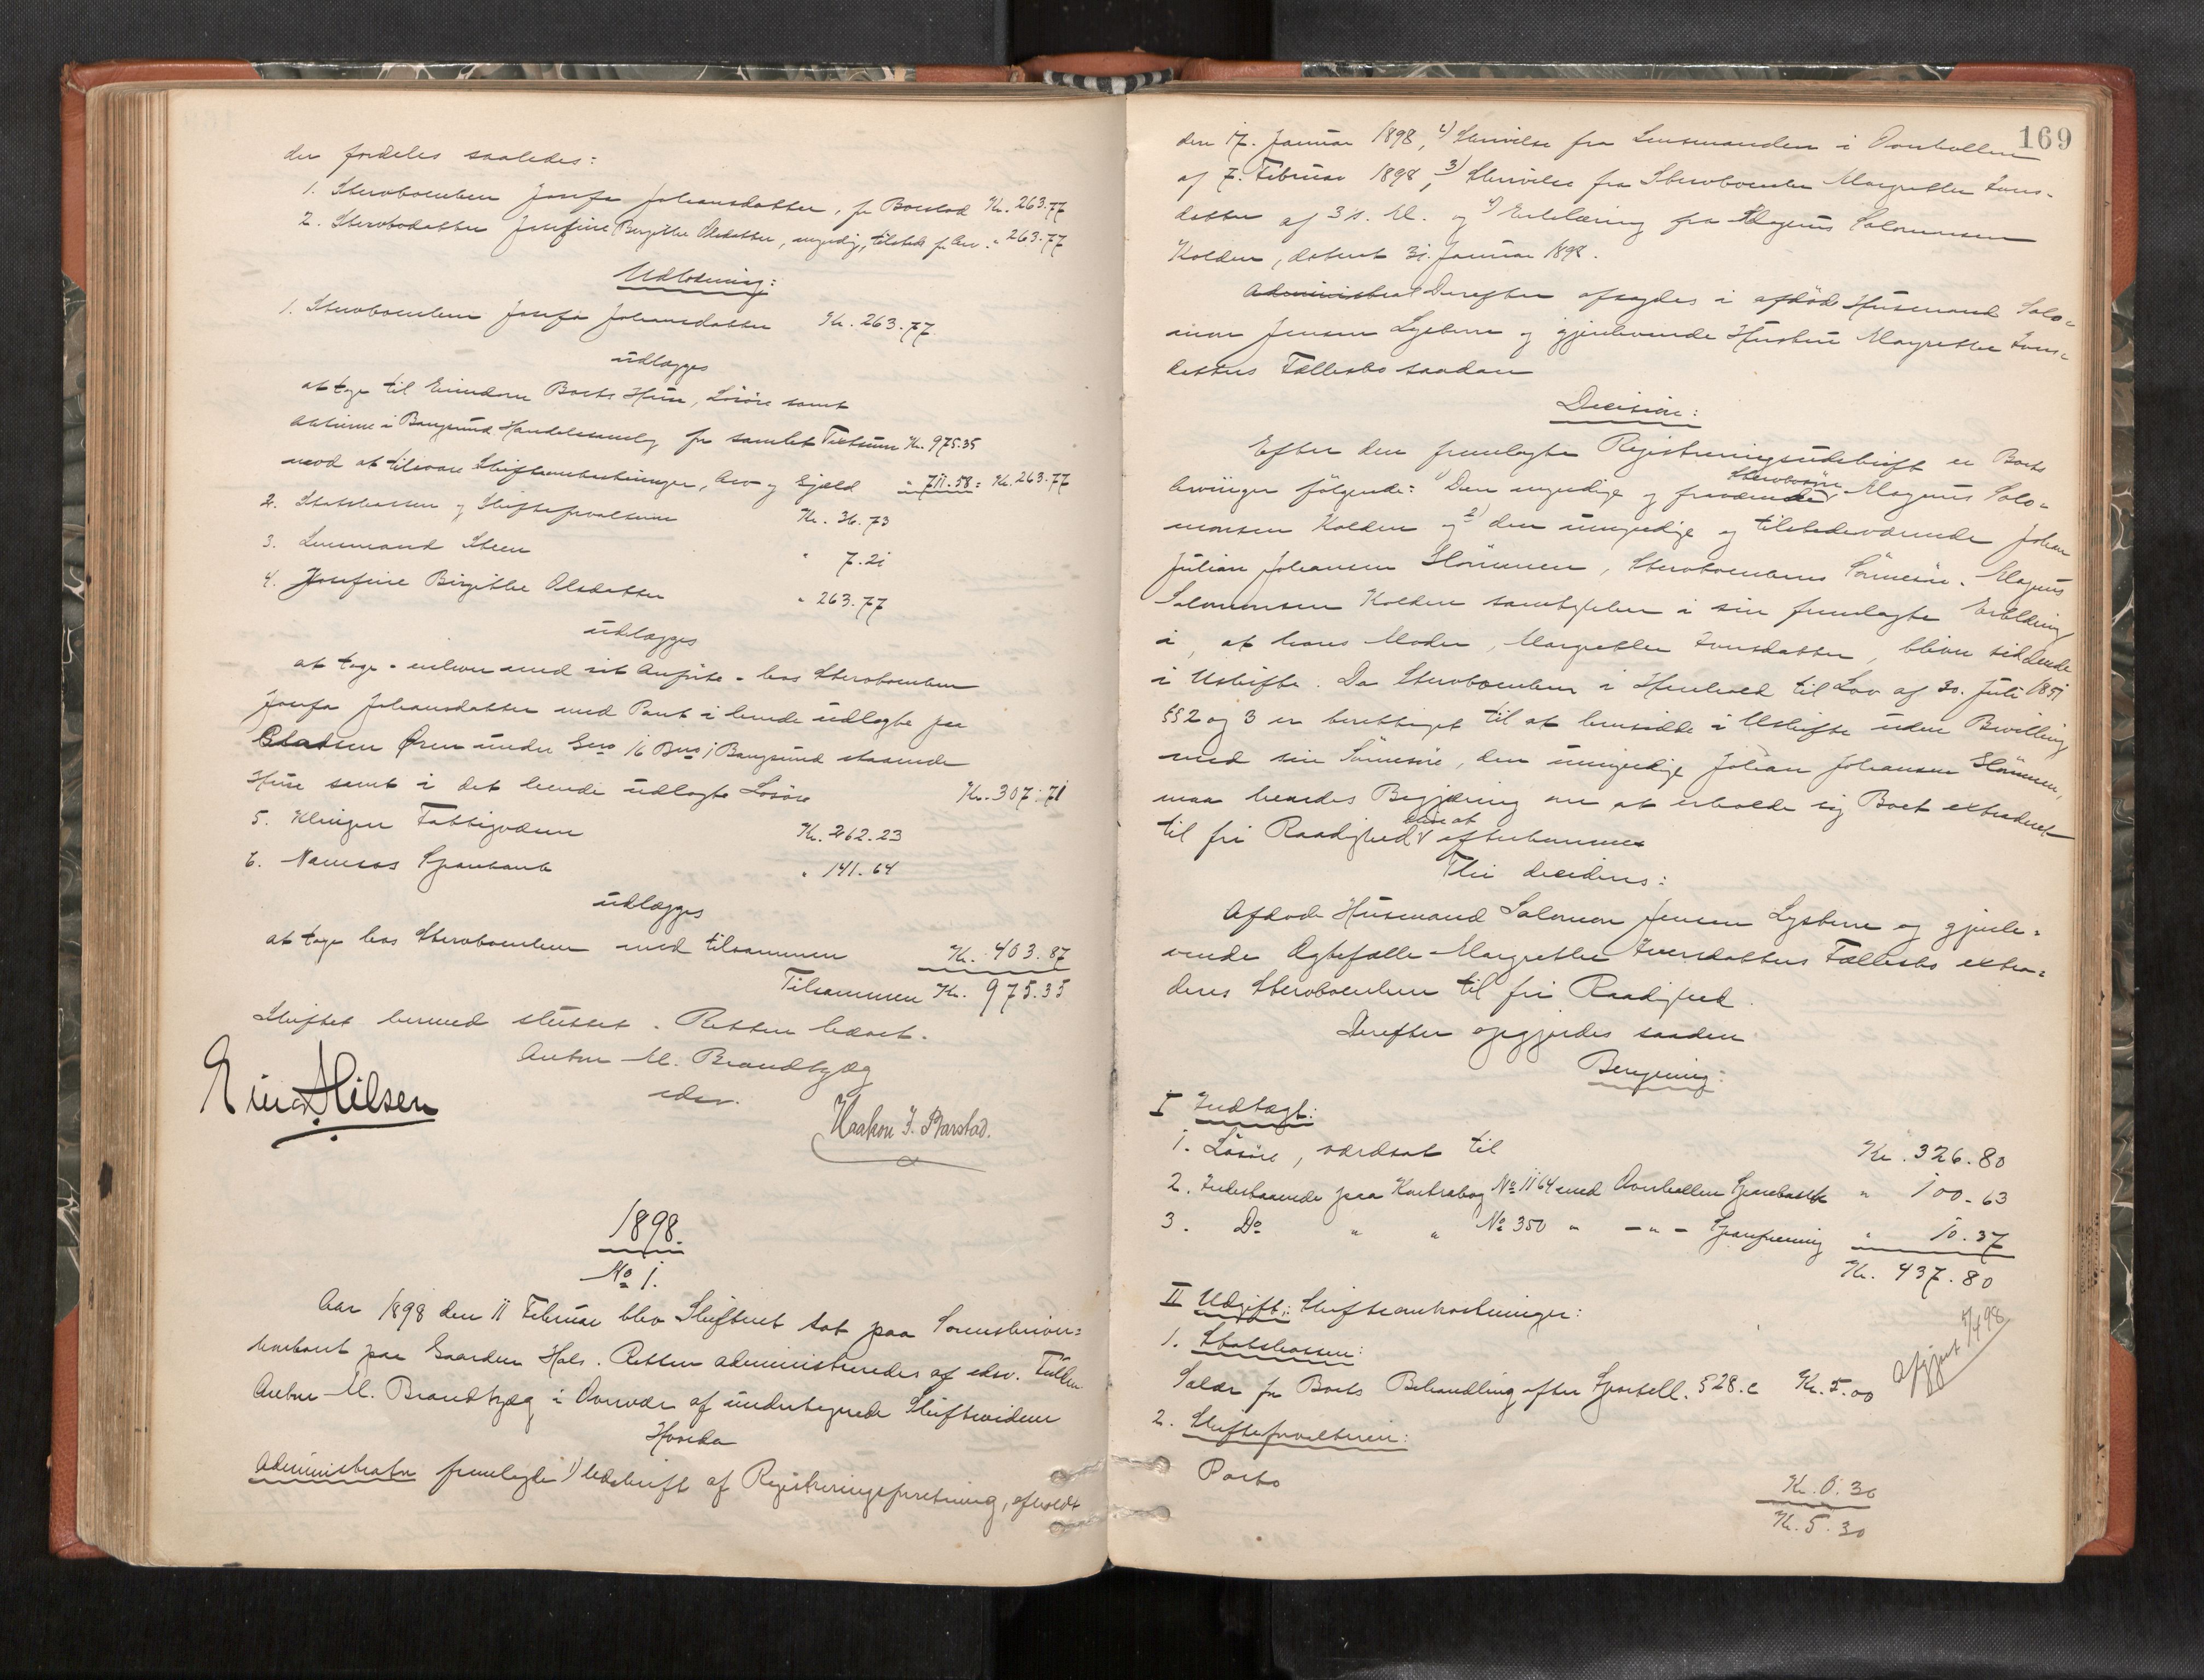 der fordeles saaledes:
1. Stervboenken Josefa Johansdatter, for Boeslod Kr. 263.77
2. Stervbodatter Josefine Birgitte Olsdatter, umyndig, tilstede for Arv " 263.77
Udlodning:
1. Stervboenken Josefa Johansdatter Kr. 263.77.
udlægges
at tage til Eiendom Boets Huse, Løsøre samt
aktierne i Bangsund Handelssamlag for samlet Taktsum Kr. 975.35
mod at tilsvare Skifteomkostninger, Arv og Gjæld " 711.58 = Kr. 263.77
2. Statskassen og Skifteforvalteren Kr. 36.73
3. Lensmand Steen " 7.21
4. Josefine Birgitte Olsdatter " 263.77
udlægges
at tage - enhver med sit Anførte - hos Stervboenken
Josefa Johansdatter med Pant i hende udlagte paa
Øren under Gno 16 Bno 1 Bangsund staaende
Huse samt i det hende udlagte Løsøre Kr. 307.71
5. Klingen Fattigvæsen Kr. 262.23
6. Namsos Sparebank " 141.64
udlægges
at tage hos Stervboenken med tilsammen Kr. 403.87
Tilsammen Kr. 975.35
Skiftet hermed sluttet. Retten hævet.
Anton M. Brandtzæg
edsv.
Einar Nilsen
Haakon J. Barstad.
1898.
No 1.
Aar 1898 den 11 Februar blev Skifteret sat paa Sorenskriver-
kontoret paa Gaarden Hals. Retten administreredes af edsv. Fuldm.
Anton M. Brandtzæg i Overvær af undertegnede Skiftevidner
Hvorda
Administrator fremlagde 1) Udskrift af Registreringsforretning, afholdt
169
den 17. Januar 1898, 2) Skrivelse fra Lensmanden i Overhallen
af 7. Februar 1898, 3) Skrivelse fra Stervboenken Margrethe Ivers-
datter af 3 s. M. og 4) Erklæring fra Magnus Salomonsen
Kolden, dateret 31. Januar 1898.
Administrat Derefter afsagdes i afdøde Husmand Salo-
mon Jensen Lysberg og gjenlevende Hustru Margrethe Ivers-
datters Fællesbo saadan
Decision:
Efter den fremlagte Registreringsudskrift er Boets
Arvinger følgende: 1) Den myndige og fraværende Stervbosøn Magnus Salo-
monsen Kolden og 2) den umyndige og tilstedeværende Johan
Julian Johansen Strømmen, Stervboenkens Sønnesøn. Magnus
Salomonsen Kolden samtykker i sin fremlagte Erklæring
i, at hans Moder, Margrethe Iversdatter, bliver siddende
i Uskifte. Da Stervboenken i Henhold til Lov af 30. Juli 1851
§§ 2 og 3 er berettiget til at hensidde i Uskifte uden Bevilling
med sin Sønnesøn, den umyndige Johan Johansen Strømmen,
maa hendes Begjæring om at erholde sig Boet extraderet
til fri Raadighed være at efterkomme
Thi decideres:
Afdøde Husmand Salomon Jensen Lysberg og gjenle-
vende Ægtefælle Margrethe Iversdatters Fællesbo extra-
deres Stervboenken til fri Raadighed.
Derefter opgjordes saadan
Beregning:
I Indtægt:
1. Løsøre, værdsat til Kr. 326.80
2. Indestaaende paa Kontrabog No 1164 med Overhallen Sparebank " 100.63
3. Do " " No 350 " - " - Spareforening " 10.37
Kr. 437.80
II Udgift: Skifteomkostninger:
1. Statskassen:
Salær for Boets Behandling efter Sportell. § 28.c Kr. 5.00
Afgjort 5/4 98
2. Skifteforvalteren:
Porto Kr. 0.30
Kr. 5.30